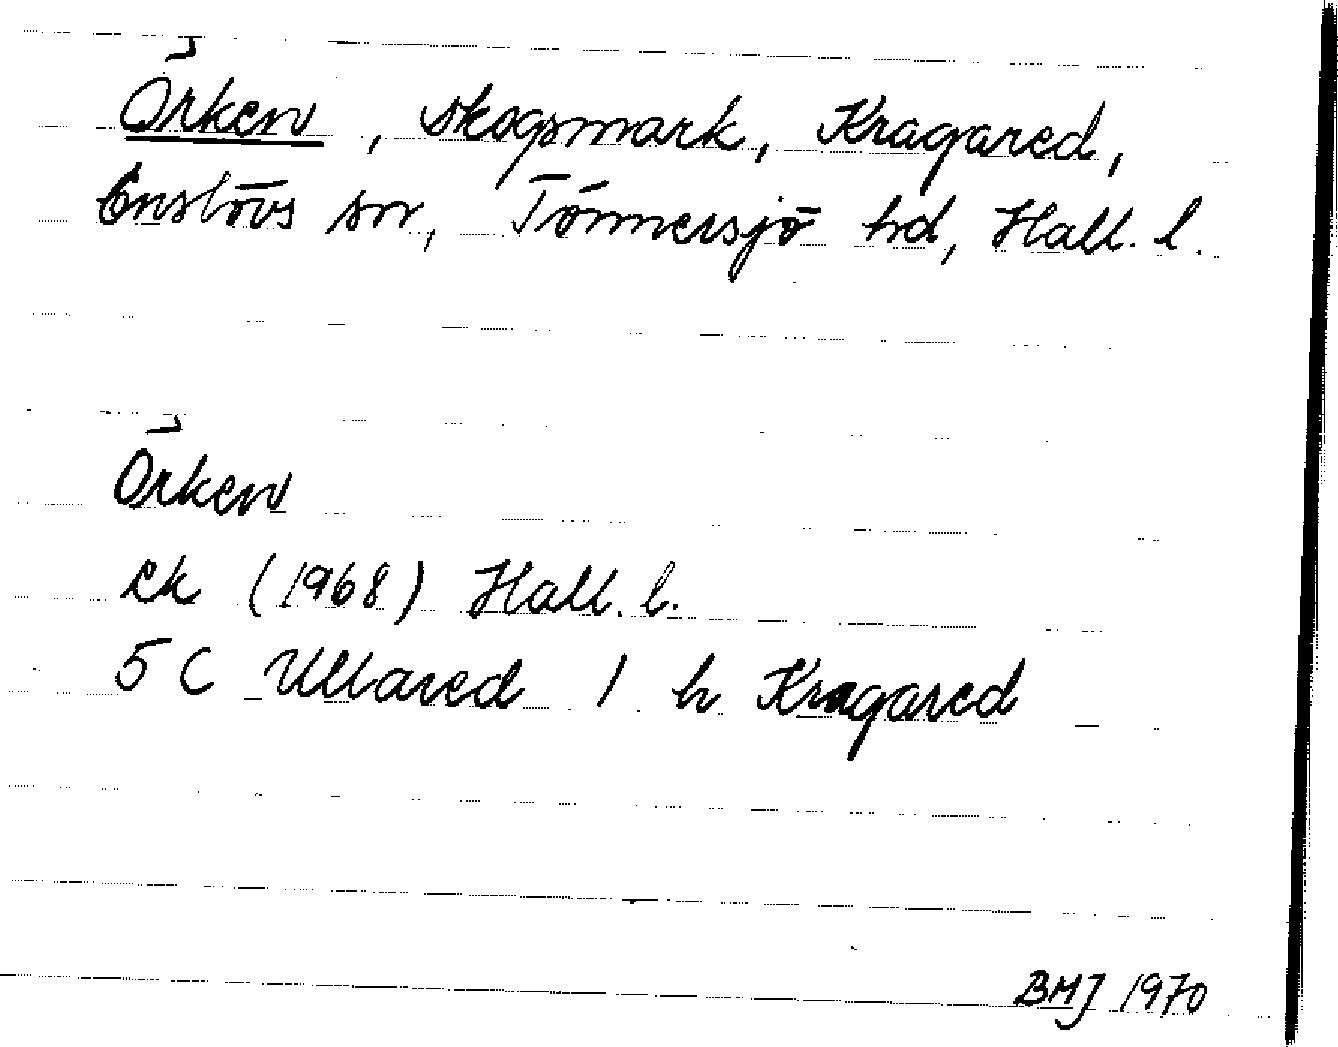 Örken, skogsmark, Kragared,
Enslövs sn, Tönnersjö hd, Hall. l.
Örken
ek (1968) Hall. l.
5 C Ullared 1 h Kragared
BMJ 1970